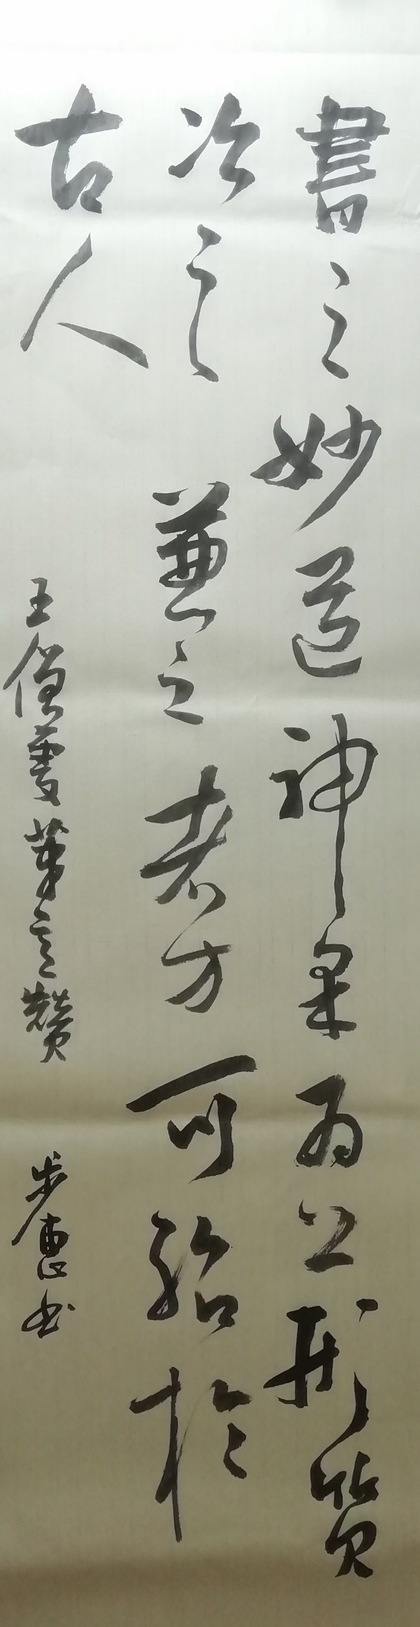 書之妙道神采为上形質
次之兼之者方可紹於
古人
王僧虔筆意贊
步惠书